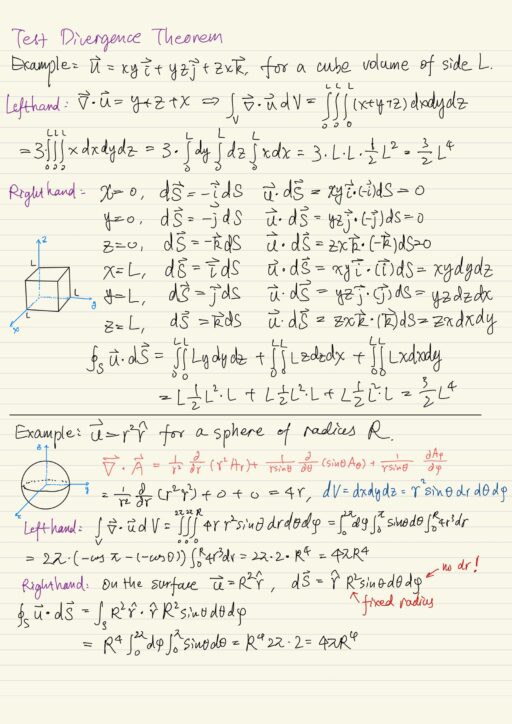 Test Divergence Theorem
Example: u⃗ = xy i⃗ + yz j⃗ + zx k⃗, for a cube volume of side L.
Lefthand: ∇⃗·u⃗ = y+z+x ⇒ ∫_V ∇⃗·u⃗ dV = ∫₀ᴸ∫₀ᴸ∫₀ᴸ (x+y+z) dxdydz
= 3·∫₀ᴸ∫₀ᴸ∫₀ᴸ x dxdydz = 3·∫₀ᴸ dy ∫₀ᴸ dz ∫₀ᴸ x dx = 3·L·L·½L² = 3/2 L⁴
Righthand: x=0, dS⃗ = -i⃗ dS u⃗·dS⃗ = xy i⃗·(-i⃗)dS = 0
y=0, dS⃗ = -j⃗ dS u⃗·dS⃗ = yz j⃗·(-j⃗)dS = 0
z=0, dS⃗ = -k⃗ dS u⃗·dS⃗ = zx k⃗·(-k⃗)dS = 0
x=L, dS⃗ = i⃗ dS u⃗·dS⃗ = xy i⃗·(i⃗)dS = xy dydz
y=L, dS⃗ = j⃗ dS u⃗·dS⃗ = yz j⃗·(j⃗)dS = yz dzdx
z=L, dS⃗ = k⃗ dS u⃗·dS⃗ = zx k⃗·(k⃗)dS = zx dxdy
z
L
L
L
y
x
∮_S u⃗·dS⃗ = ∫₀ᴸ∫₀ᴸ Ly dydz + ∫₀ᴸ∫₀ᴸ Lz dzdx + ∫₀ᴸ∫₀ᴸ Lx dxdy
= L ½L²·L + L ½L²·L + L ½L²·L = 3/2 L⁴
Example: u⃗ = r² r̂ for a sphere of radius R.
∇⃗·A⃗ = 1/r² ∂/∂r (r²A_r) + 1/(r sinθ) ∂/∂θ (sinθ A_θ) + 1/(r sinθ) ∂A_φ/∂φ
= 1/r² ∂/∂r (r² r²) + 0 + 0 = 4r, dV = dxdydz = r² sinθ dr dθ dφ
z
y
x
Lefthand: ∫_V ∇⃗·u⃗ dV = ∫₀^2π∫₀^π∫₀^R 4r r² sinθ dr dθ dφ = ∫₀^2π dφ ∫₀^π sinθ dθ ∫₀^R 4r³ dr
= 2π·(-cosπ-(-cos0)) ∫₀^R 4r³ dr = 2π·2·R⁴ = 4πR⁴
no dr!
Righthand: On the surface u⃗ = R² r̂, dS⃗ = r̂ R² sinθ dθ dφ
fixed radius
∮_S u⃗·dS⃗ = ∫_S R² r̂·r̂ R² sinθ dθ dφ
= R⁴ ∫₀^2π dφ ∫₀^π sinθ dθ = R⁴ 2π·2 = 4πR⁴